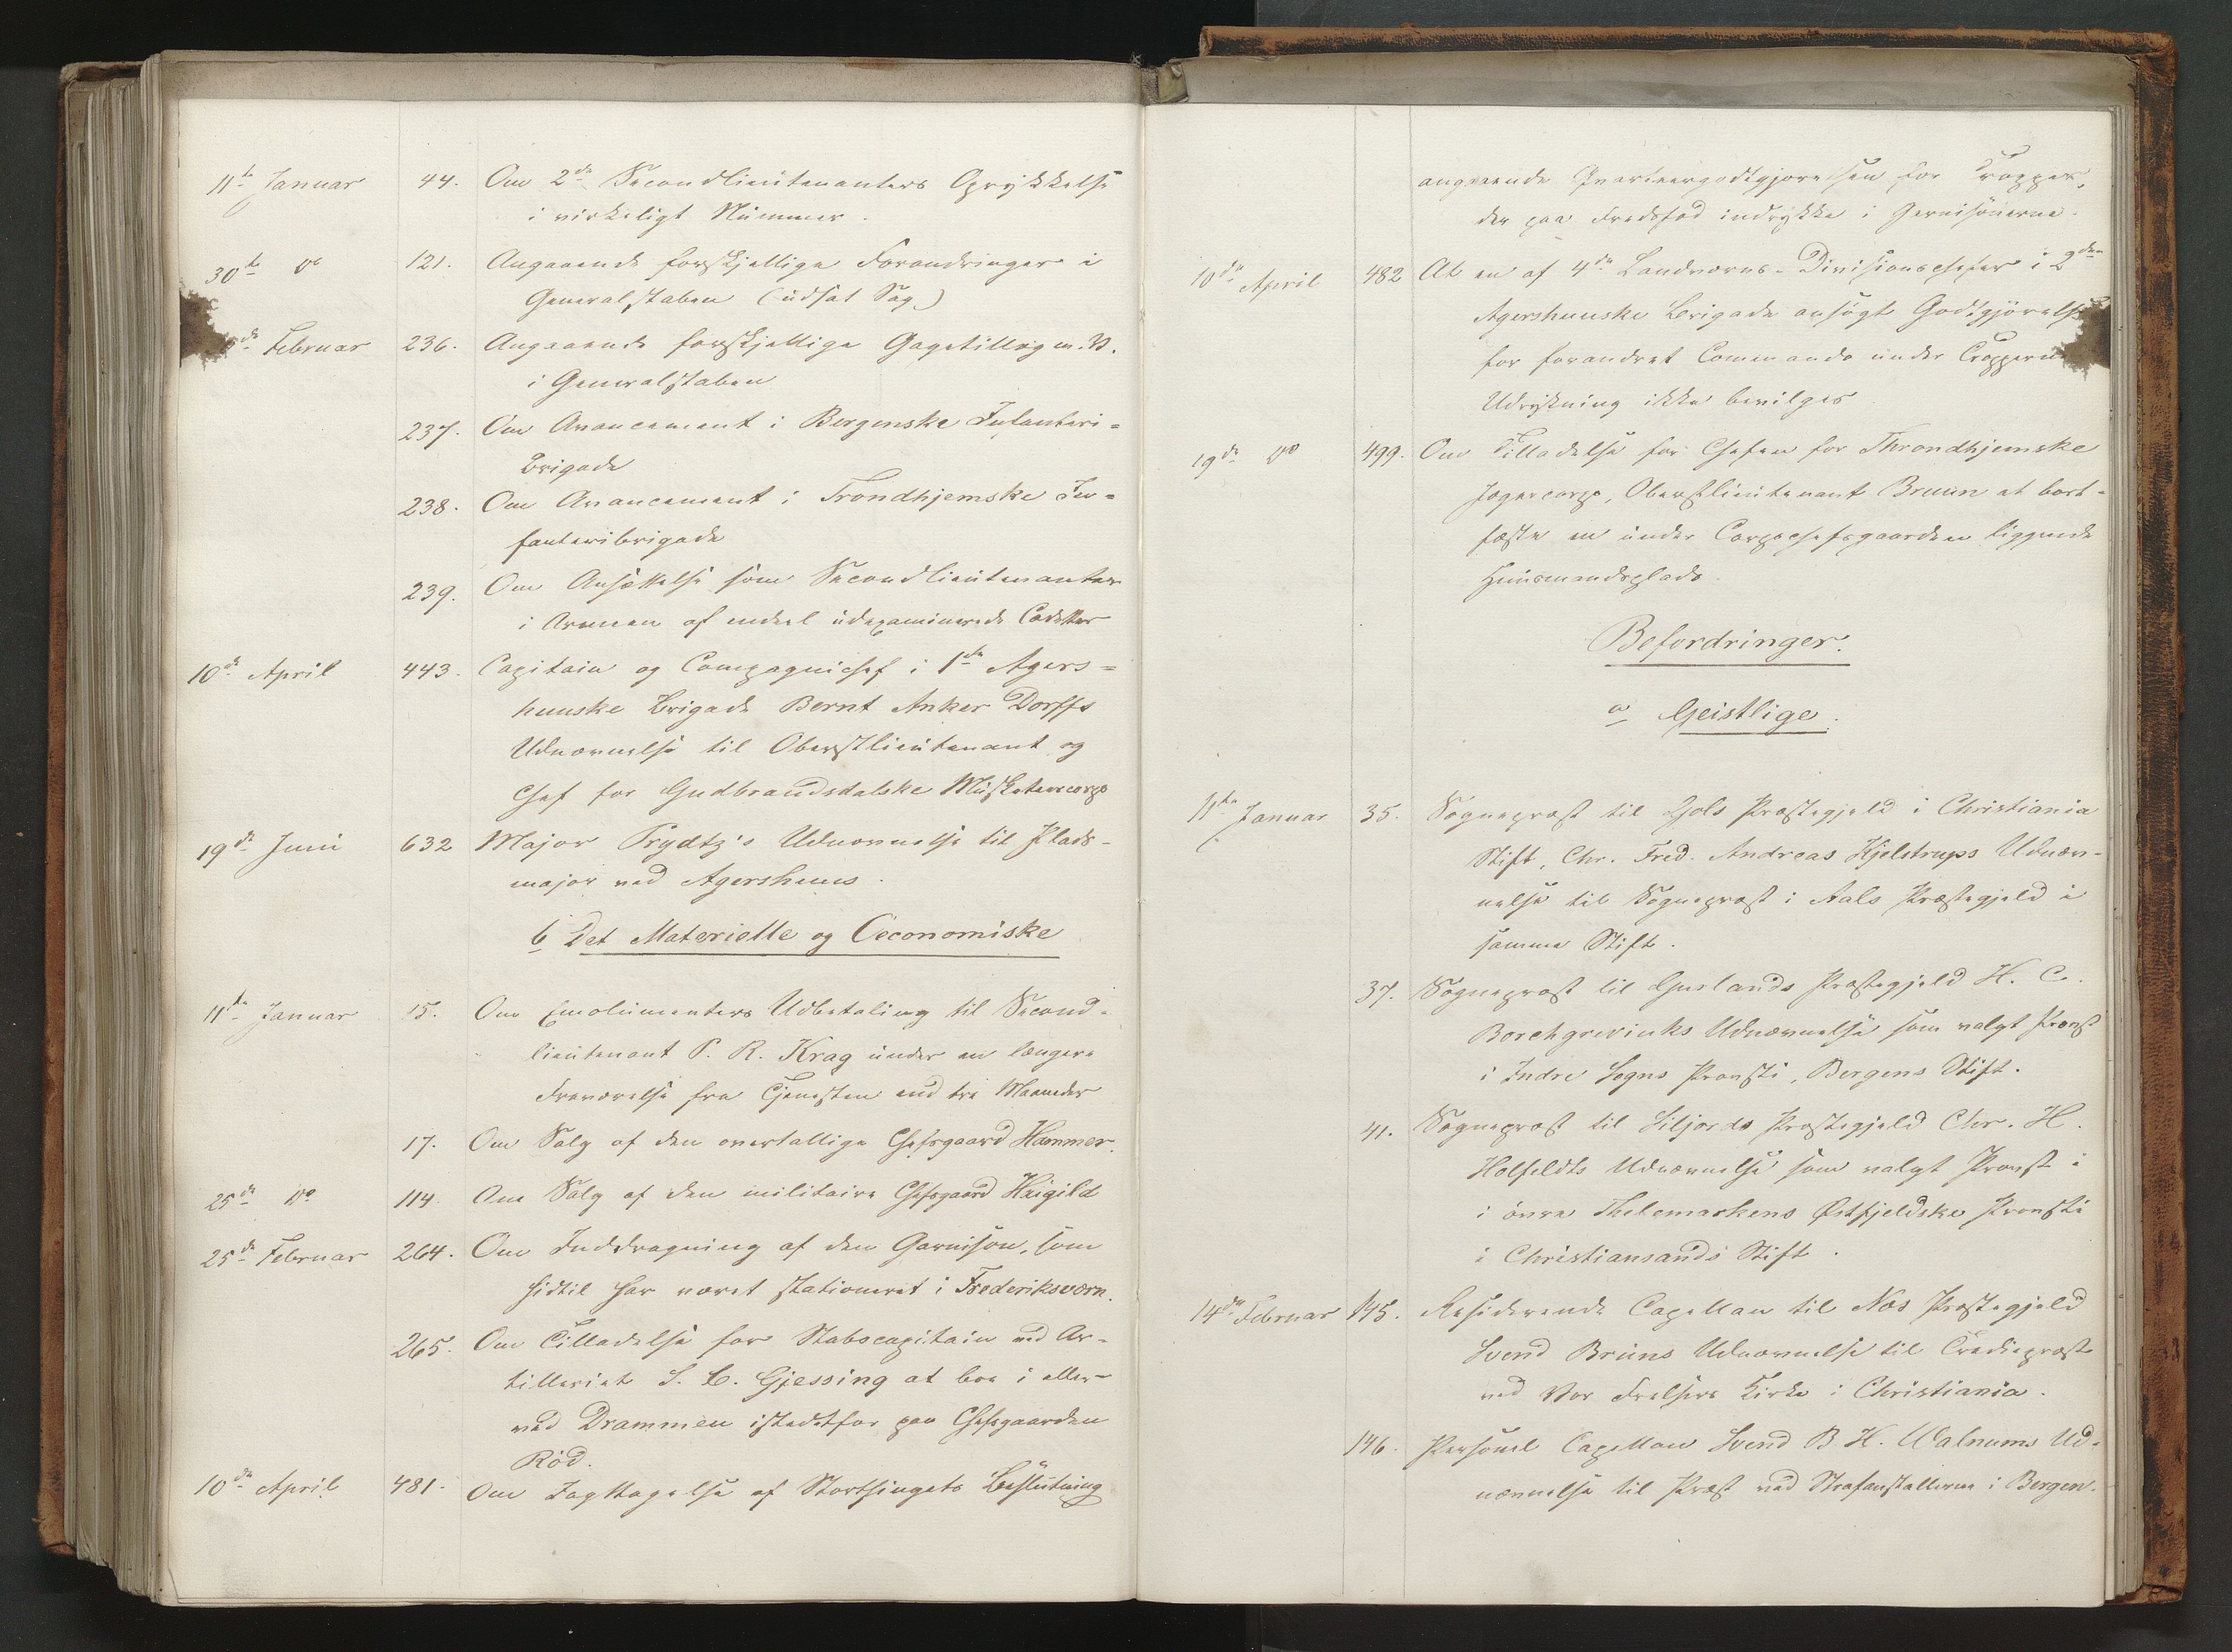 11te Januar 44. Om 2de Secondlieutenanters Oprykkelse
i virkeligt Nummer.
30te do 121. Angaaende forskjellige Forandringer i
Generalstaben (udsat Sag)
de Februar 236. Angaaende forskjellige Gagetillæg m. V.
i Generalstaben
237. Om Avancement i Bergenske Infanteri=
brigade
238. Om Avancement i Trondhjemske In=
fanteribrigade
239. Om Ansættelse som Secondlieutenanter
i Armeen af endeel udexaminerede Cadetter
10de April 443. Capitain og Compagnichef i 1ste Agers=
huuske Brigade Bernt Anker Dorffs
Udnævnelse til Oberstlieutenant og
Chef for Gudbrandsdalske Musketeercorps
19de Juni 632 Major Prydtz's Udnævnelse til Plads-
major ved Agershuus.
b Det Materielle og Oeconomiske
11te Januar 15. Om Emolumenters Udbetaling til Second-
lieutenant P. R. Krag under en længere
Fraværelse fra Tjenesten end tre Maaneder
17. Om Salg af den overtallige Chefsgaard Hammer.
25de do 114 Om Salg af den militaire Chefsgaard Haigild
25de Februar 264. Om Inddragning af den Garnison, som
hidtil har været stationeret i Frederiksværn.
265. Om Tilladelse for Stabscapitain ved Ar-
tilleriet S. C. Gjessing at boe i eller
ved Drammen istedetfor paa Chefsgaarden
Röd.
10de April 481. Om Iagttagelse af Storthingets Beslutning
angaaende Qvarteergodtgjørelsen for Tropper,
der paa Fredsfod indrykke i Garnisonerne.
10de April 482 At en af 4de Landværns-Divisionschefer i 2den
Agershuuske Brigade ansøgt Godtgjörelse
for forandret Commando under Troppernes
Udrykning ikke bevilges
19de do 499. Om Tilladelse for Chefen for Throndhjemske
Jægercorps, Oberstlieutenant Bruun at bort-
fæste en under Corpschefsgaarden liggende
Huusmandsplads.
Befordringer.
a Geistlige.
11te Januar 35. Sognepræst til Gols Præstegjeld i Christiania
Stift, Chr. Fred. Andreas Kjelstrups Udnæv-
nelse til Sognepræst i Aals Præstegjeld i
samme Stift.
37. Sognepræst til Urlands Præstegjeld H. C.
Borchgrevinks Udnævnelse som valgt Provst
i Indre Sogns Provsti, Bergens Stift.
41. Sognepræst til Siljords Præstegjeld Chr. H.
Holfeldts Udnævnelse som valgt Provst i
i övre Thelemarkens Østfjeldske Provsti
i Christiansands Stift.
14de Februar 145. Residerende Capellan til Næs Præstegjeld
Svend Bruns Udnævnelse til Trediepræst
ved Vor Frelsers Kirke i Christiania.
146. Personel Capellan Svend B. H. Walnums Ud-
nævnelse til Præst ved Strafanstalterne i Bergen.